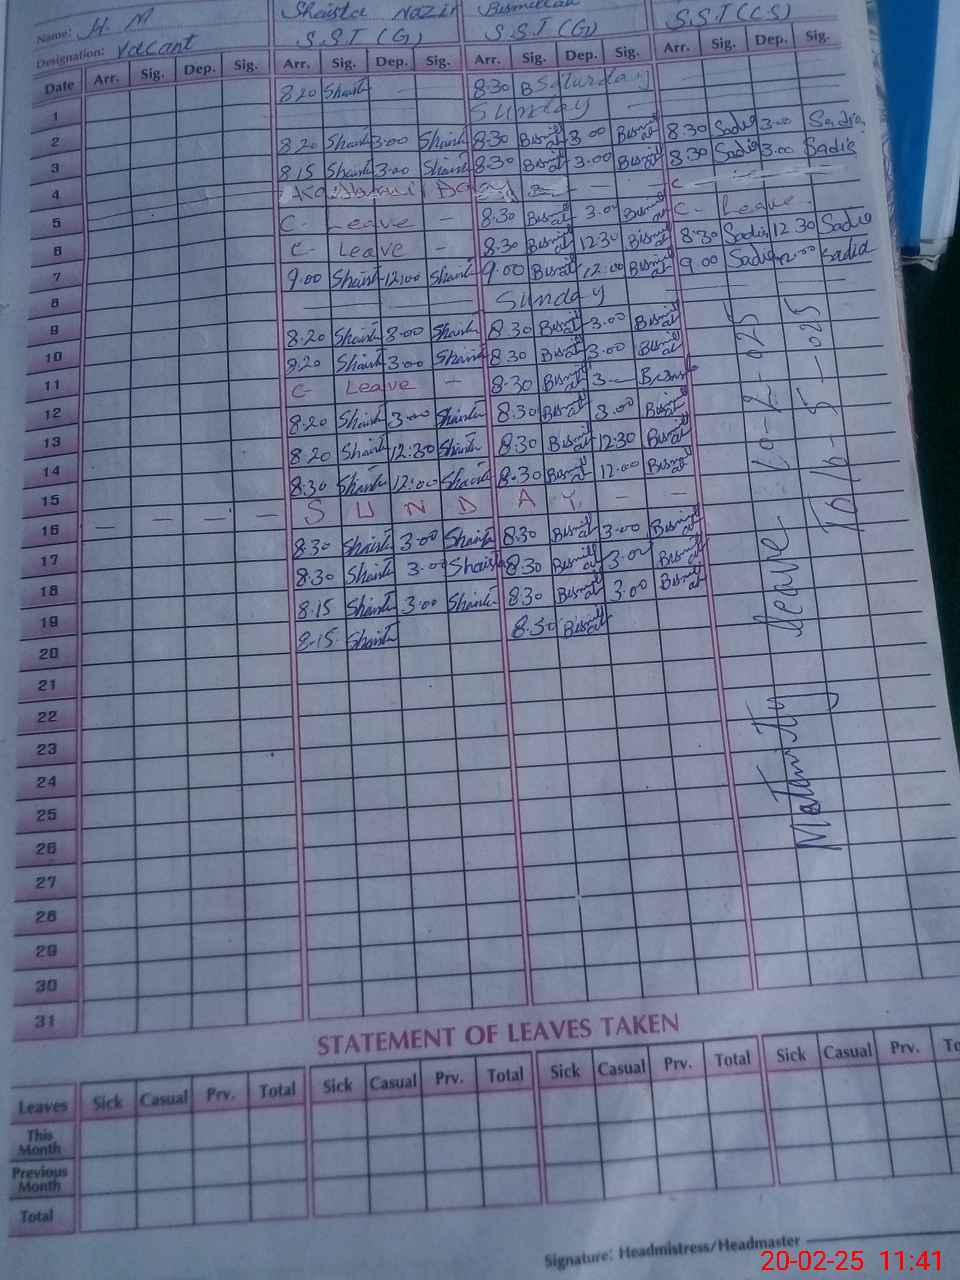 Name: H. M Shaista Nazir Bismillah
Designation: Vacant S.S.T (G) S.S.T (G) S.S.T (CS)
Date Arr. Sig. Dep. Sig. Arr. Sig. Dep. Sig. Arr. Sig. Dep. Sig. Arr. Sig. Dep. Sig.
1 8.20 Shaist — 8.30 B Saturday
2 Sunday —
3 8.20 Shaist 3.00 Shaist 8.30 Bismill 3.00 Bismill 8.30 Sadia 3.00 Sadia
4 8.15 Shaist 3.00 Shaist 8.30 Bismill 3.00 Bismill 8.30 Sadia 3.00 Sadia
5 Day — — —
6 C- Leave — 8.30 Bismill 3.00 Bismill C- Leave
7 C- Leave — 8.30 Bismill 12.30 Bismill 8.30 Sadia 12.30 Sadia
8 9.00 Shaist 12.00 Shaist 9.00 Bismill 12.00 Bismill 9.00 Sadia 12.00 Sadia
9 — — — — Sunday — —
10 8.20 Shaist 3.00 Shaist 8.30 Bismill 3.00 Bismill
11 8.20 Shaist 3.00 Shaist 8.30 Bismill 3.00 Bismill
12 C- Leave — 8.30 Bismill 3—
13 8.20 Shaist 3.00 Shaist 8.30 Bismill 3.00 Bismill
14 8.20 Shaist 12:30 Shaist 8.30 Bismill 12.30 Bismill
15 8:30 Shaist 12:00 Shaist 8.30 Bismill 12.00 Bismill
16 — — — — S U N D A Y. — —
17 8.30 Shaist 3.00 Shaist 8.30 Bismill 3.00 Bismill
18 8.30 Shaist 3.00 Shaist 8.30 Bismill 3.00 Bismill
19 8.15 Shaist 3.00 Shaist 8.30 Bismill 3.00 Bismill
20 8.15 Shaist 8.30 Bismill
21
22
23
24
25
26
27
28
29
30
31
Maternity leave 10-2-025
To 16-5-025
STATEMENT OF LEAVES TAKEN
Leaves Sick Casual Prv. Total Sick Casual Prv. Total Sick Casual Prv. Total Sick Casual Prv. To
This Month
Previous Month
Total
Signature: Headmistress/Headmaster
20-02-25 11:41